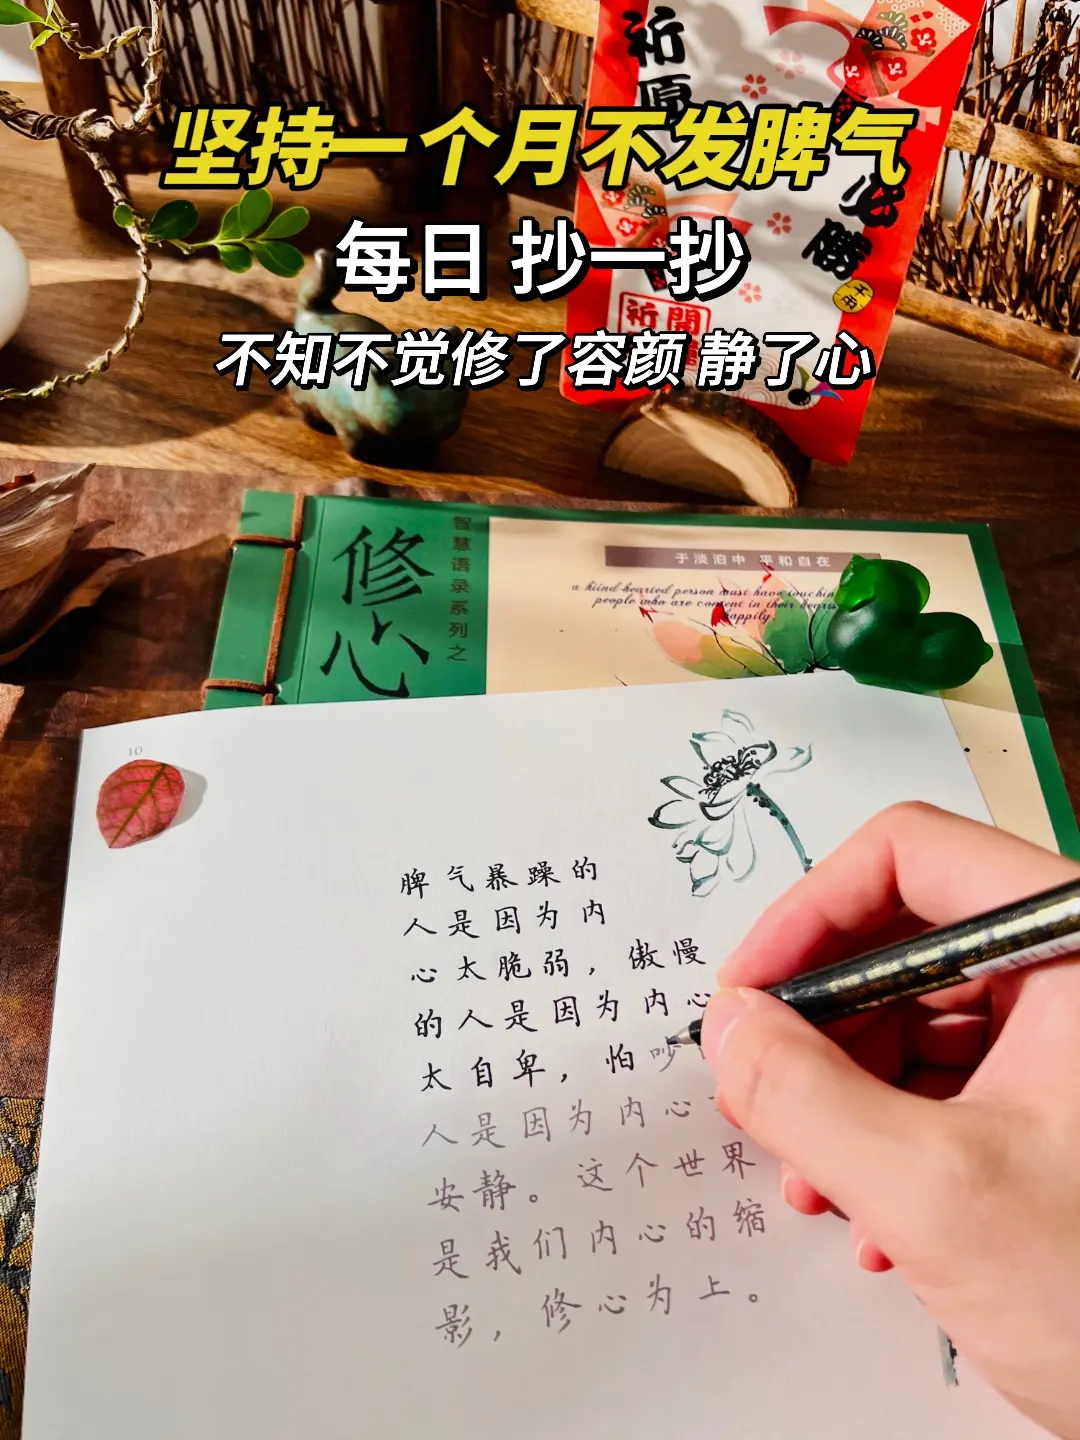 坚持一个月不发脾气
每日 抄一抄
不知不觉修了容颜 静了心
祈願
必勝
祈
開
修心
智慧语录系列之
于淡泊中 平和自在
a kiind-hearted person must have touchin
people who are content in their hearts
happily.
10
脾气暴躁的
人是因为内
心太脆弱，傲慢
的人是因为内心
太自卑，怕吵
人是因为内心
安静。这个世界
是我们内心的缩
影，修心为上。